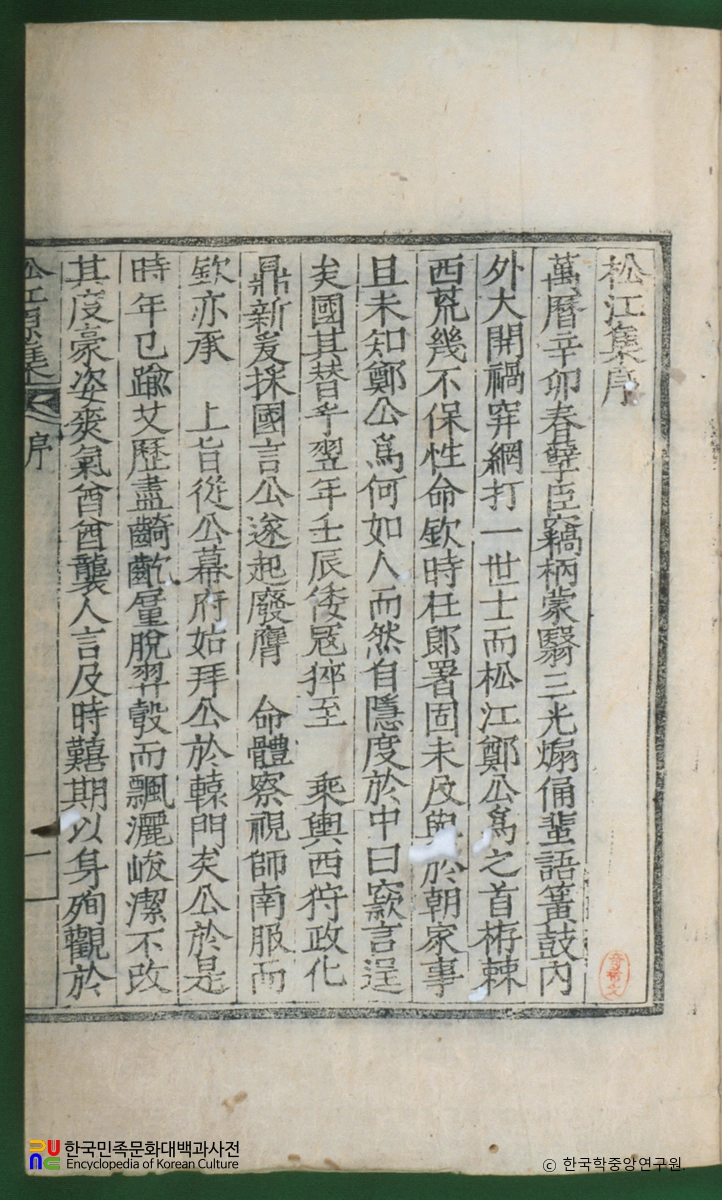 松江集序
萬曆辛卯春孼臣竊柄蒙翳三光煽俑蜚語簧鼓內
外大開禍穽網打一世士而松江鄭公爲之首栫棘
西荒幾不保性命欽時在郞署固未及與於朝家事
且未知鄭公爲何如人而然自隱度於中曰窾言逞
矣國其替乎翌年壬辰倭寇猝至 乘輿西狩政化
鼎新爰採國言公遂起廢膺 命體察視師南服而
欽亦承 上旨從公幕府始拜公於轅門矣公於是
時年已踰艾歷盡齮齕屢脫羿彀而飄灑峻潔不改
其度豪姿爽氣酋酋襲人言及時艱期以身殉觀於
松江原集
序
一
한국민족문화대백과사전
Encyclopedia of Korean Culture
ⓒ 한국학중앙연구원